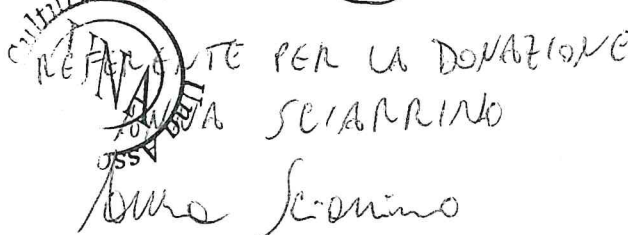 Cultu
REFERENTE PER LA DONAZIONE
ANNA SCIARRINO
Una Asso
Anna Sciarrino